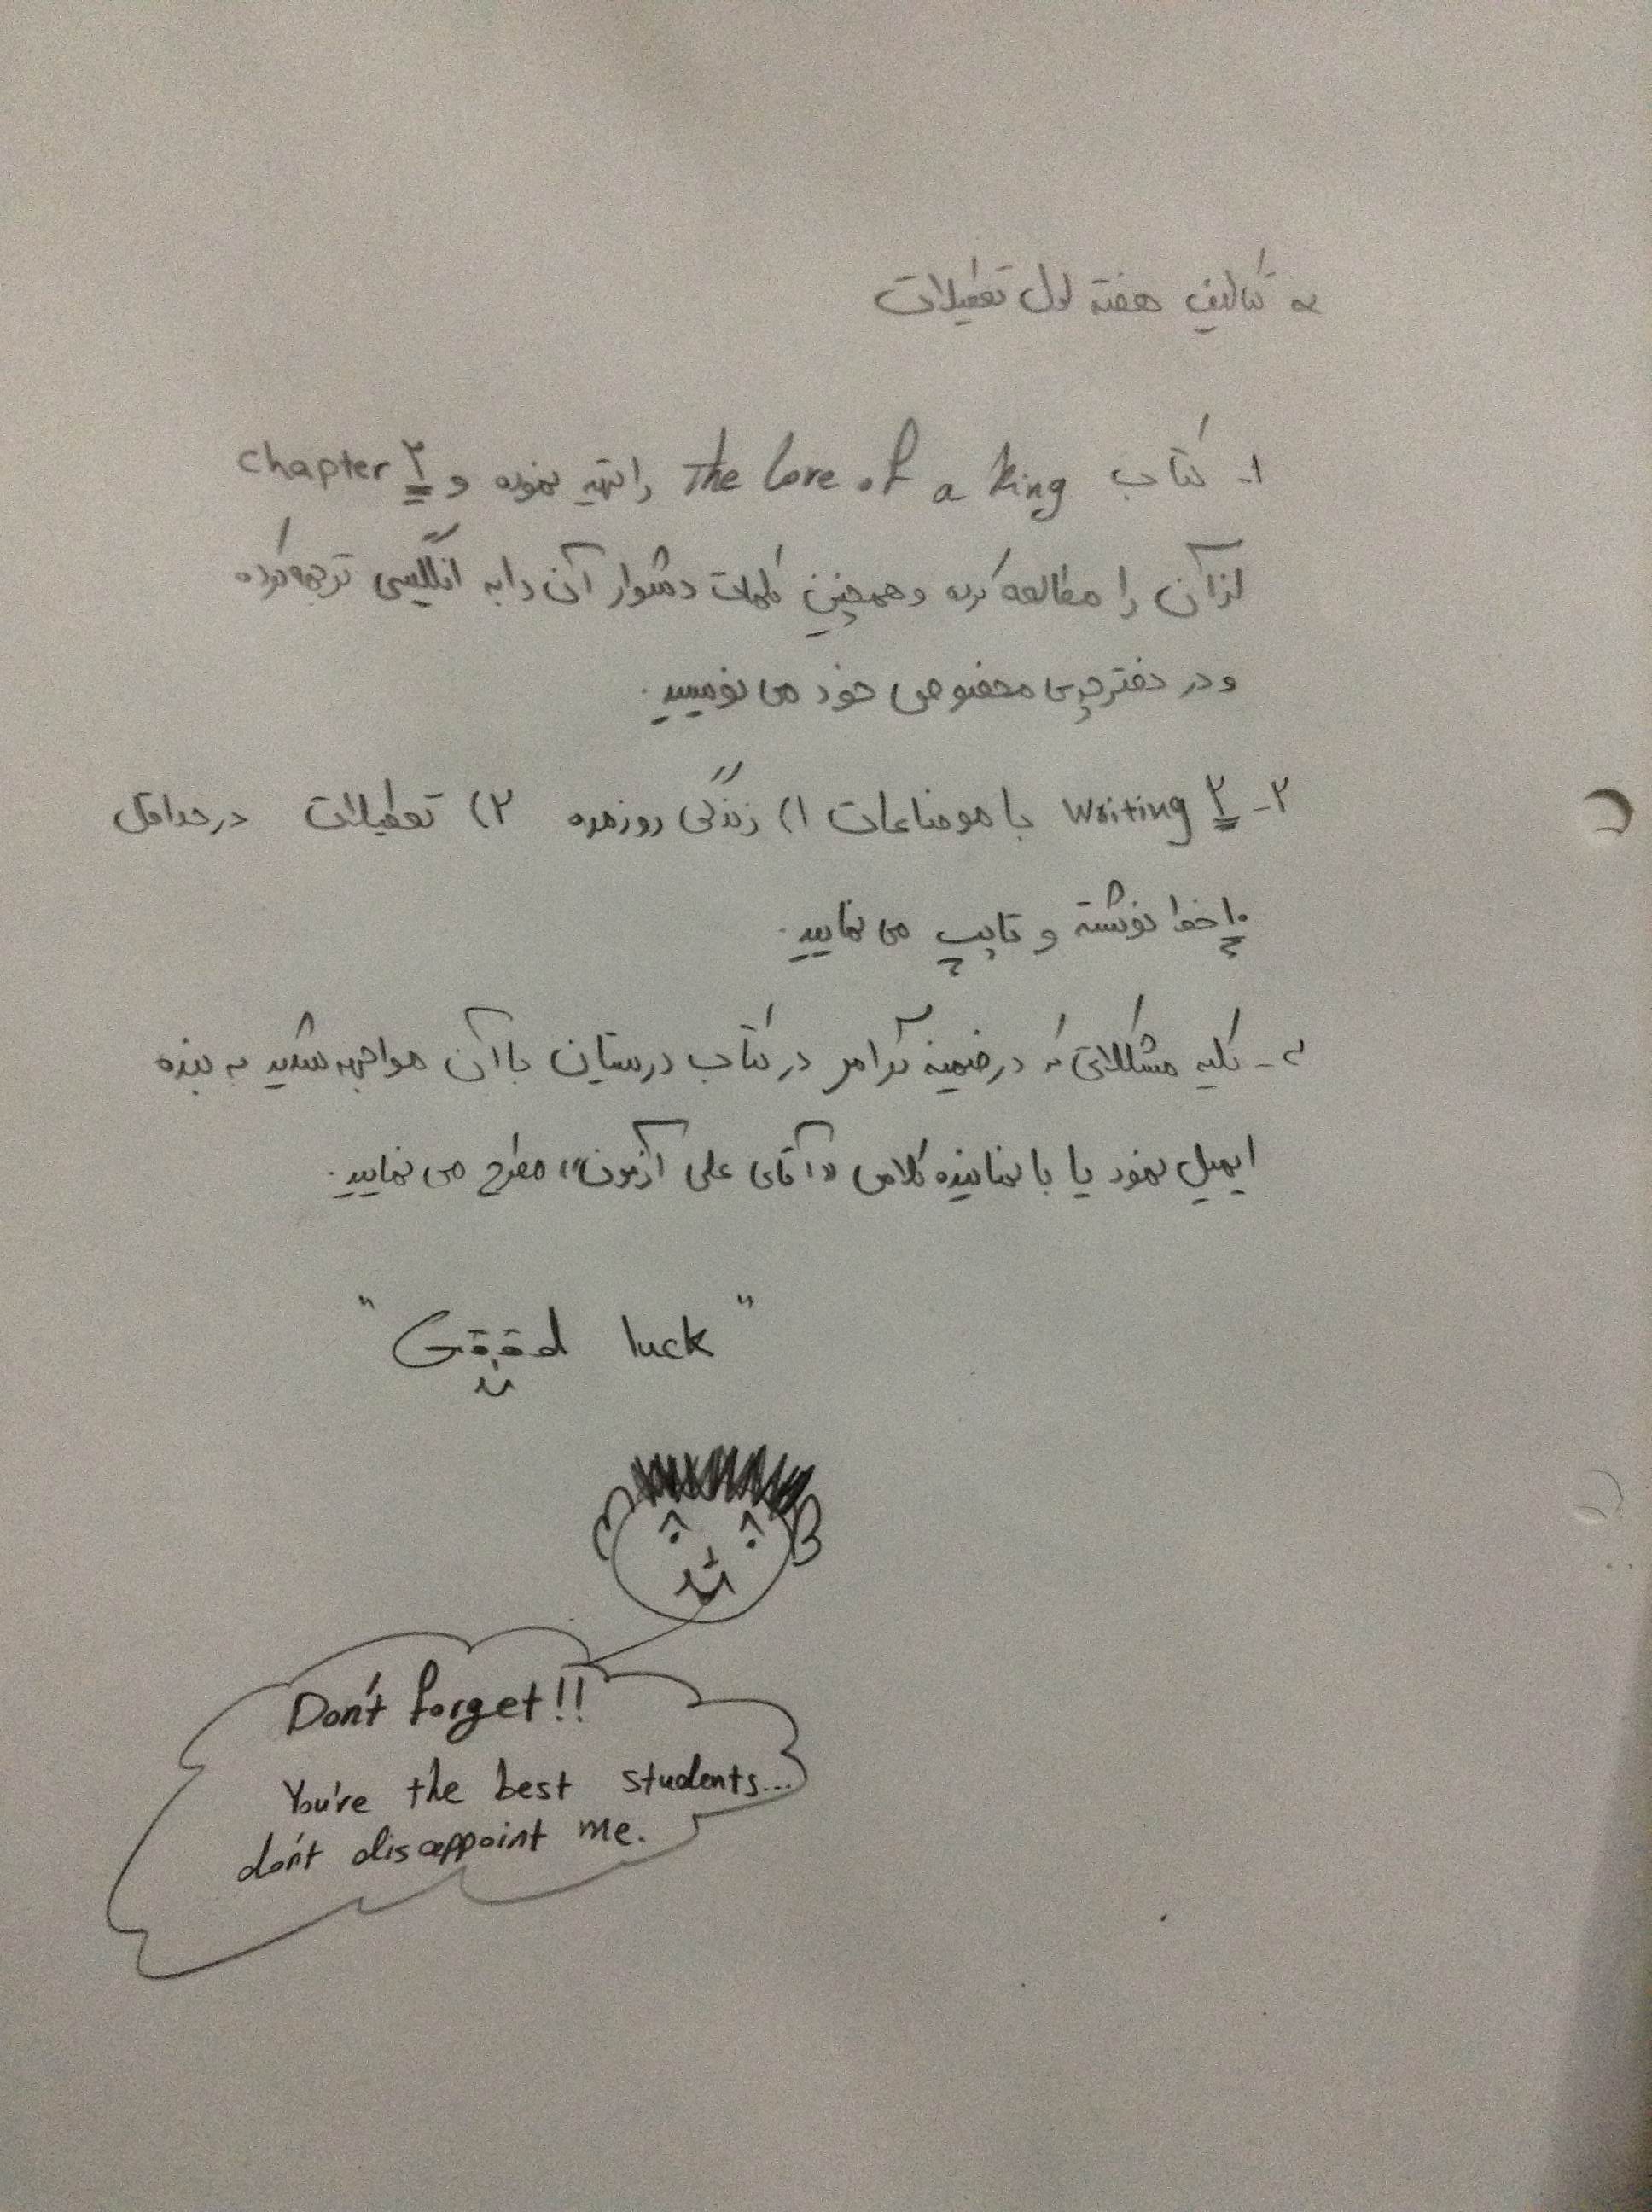 تکالیف هفته اول تعطیلات
۱- کتاب The love of a king را تهیه نموده و ۲ chapter
از آن را مطالعه کرده و همچنین کلمات دشوار آن را به انگلیسی ترجمه کرده
و در دفترچه‌ی مخصوص خود می نویسید.
۲- ۲ writing با موضاعات ۱) زندگی روزمره ۲) تعطیلات در حداقل
۱۰ خط نوشته و تایپ می نمایید.
۳- کلیه مشکلاتی که در ضمینه گرامر در کتاب درستان با آن مواجهه شدید به بنده
ایمیل نمود یا با نماینده کلاس «آقای علی آزمون» مطرح می نمایید.
"Good luck"
Don't forget!!
You're the best students...
don't disappoint me.